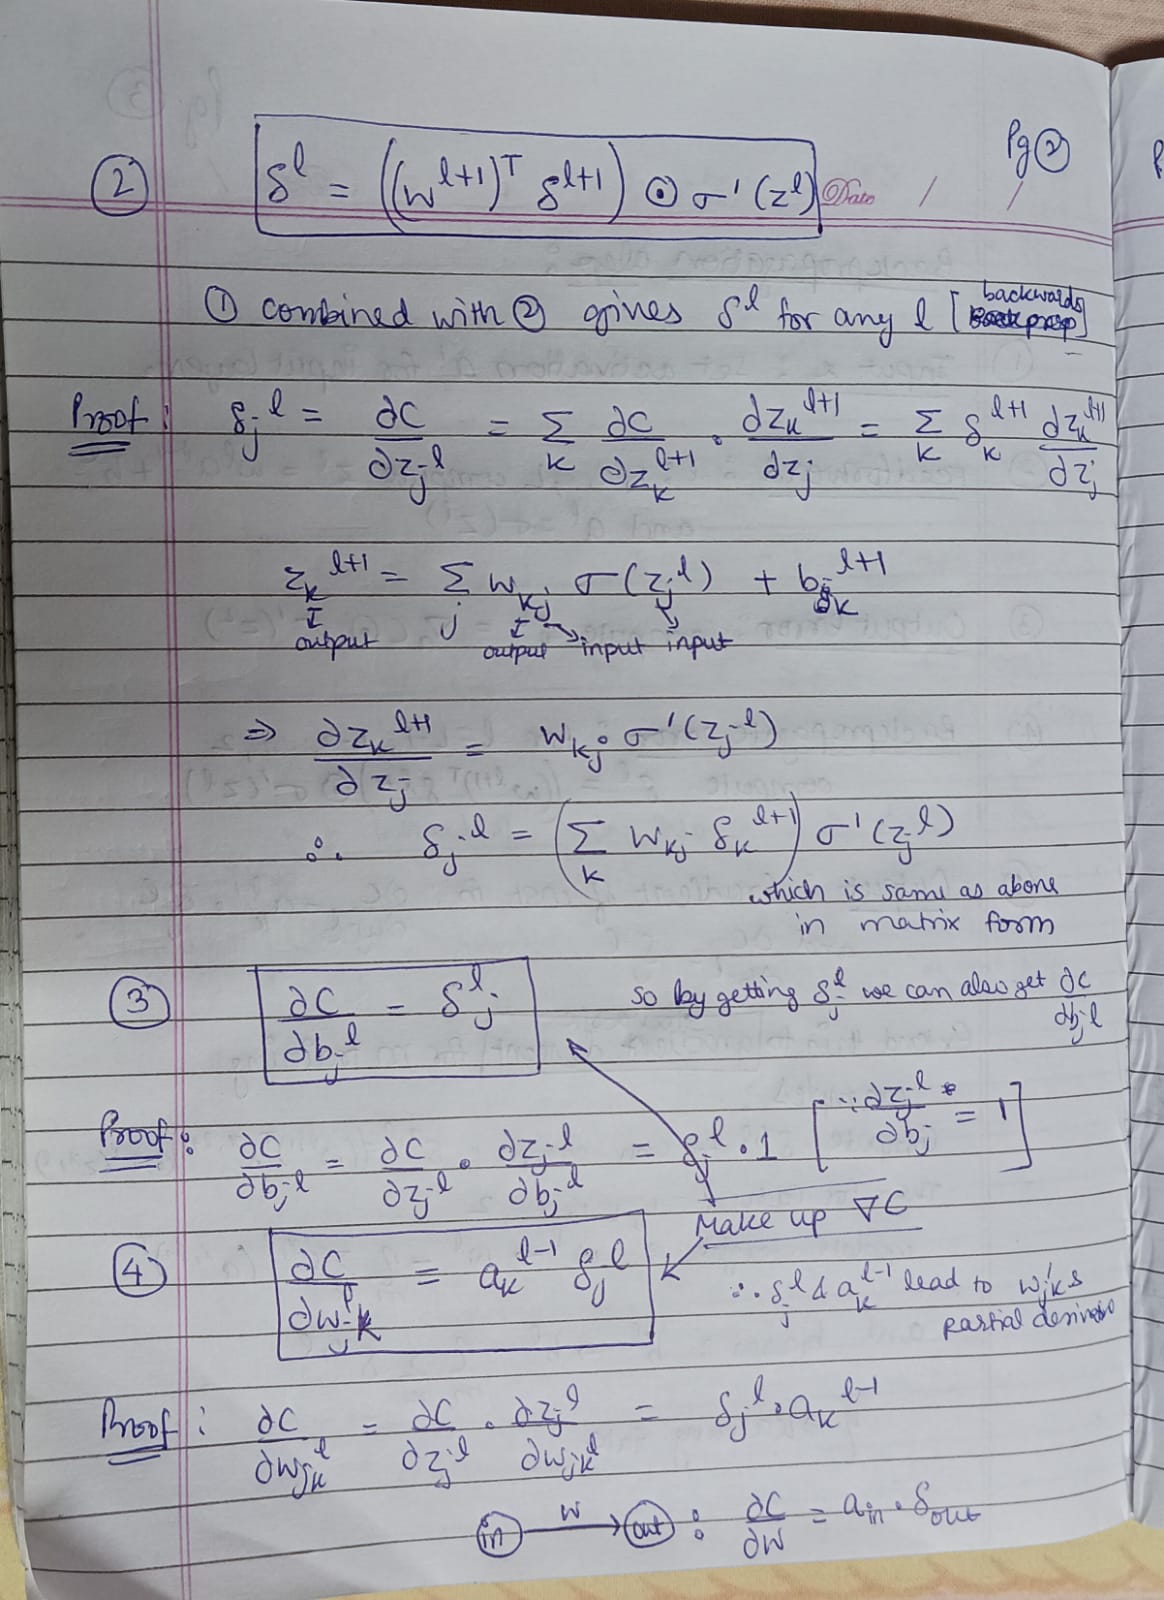 Pg ②
② δ^l = ((w^{l+1})^T δ^{l+1}) ⊙ σ'(z^l)
Date / /
① combined with ② gives δ^l for any l [backwards]
Proof : δ_j^l = ∂C/∂z_j^l = Σ_k ∂C/∂z_k^{l+1} · ∂z_k^{l+1}/∂z_j = Σ_k δ_k^{l+1} ∂z_k^{l+1}/∂z_j
z_k^{l+1} = Σ_j w_kj σ(z_j^l) + b_k^{l+1}
output output input input
⇒ ∂z_k^{l+1}/∂z_j = w_kj σ'(z_j^l)
∴ δ_j^l = (Σ_k w_kj δ_k^{l+1}) σ'(z_j^l)
which is same as above
in matrix form
③ ∂C/∂b_j^l = δ_j^l so by getting δ_j^l we can also get ∂C/∂b_j^l
Proof : ∂C/∂b_j^l = ∂C/∂z_j^l · ∂z_j^l/∂b_j^l = δ_j^l · 1 [∵ ∂z_j^l/∂b_j = 1]
Make up ∇C
④ ∂C/∂w_jk^l = a_k^{l-1} δ_j^l
∴ δ_j^l & a_k^{l-1} lead to w_jk's
partial derivative
Proof : ∂C/∂w_jk^l = ∂C/∂z_j^l · ∂z_j^l/∂w_jk^l = δ_j^l · a_k^{l-1}
(in) —w→ (out) : ∂C/∂w = a_in · δ_out